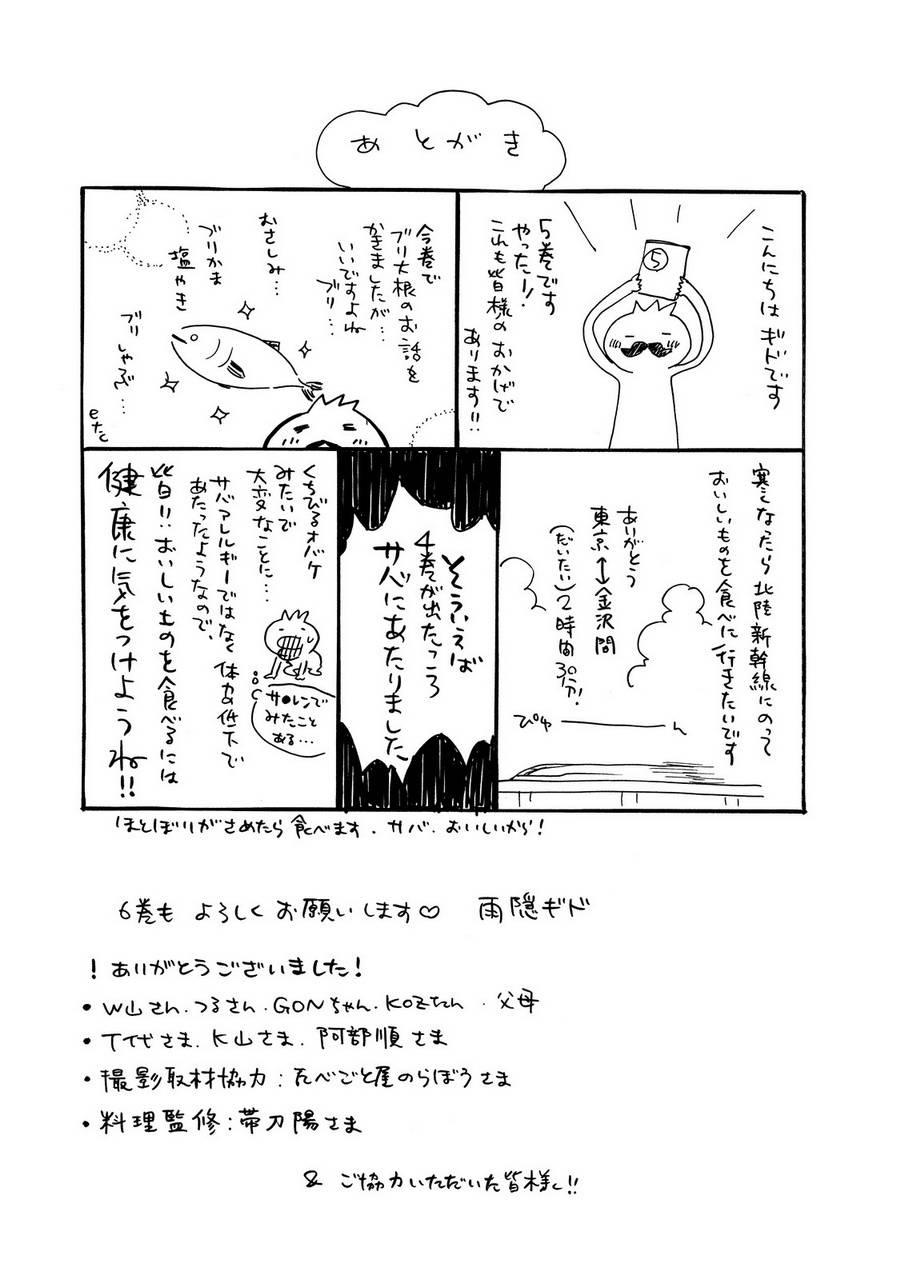 あとがき
こんにちは ギドです
5
5巻です
やったー!
これも皆様のおかげで
あります!!
今巻で
ブリ大根のお話を
かきましたが…
いいですよね
ブリ…
おさしみ…
ブリかま
塩やき
ブリ
しゃぶ…
etc
寒くなったら 北陸新幹線にのって
おいしいものを食べに行きたいです
ありがとう
東京↔金沢間
(だいたい)2時間30分!
ぴゅーーーん
そういえば
4巻が出たころ
サバにあたりました
くちびるオバケ
みたいで
大変なことに…
サ●レンで
みたこと
ある…
サバアレルギーではなく体力低下で
あたったようなので、
皆!!おいしいものを食べるには
健康に気をつけようね!!
ほとぼりがさめたら食べます.サバ.おいしいから!
6巻も よろしくお願いします♡ 雨隠ギド
!ありがとうございました!
・W山さん.つるさん.GONちゃん.KOZたん.父母
・T代さま.K山さま.阿部順さま
・撮影取材協力:たべごと屋のらぼうさま
・料理監修:帯刀陽さま
& ご協力いただいた皆様へ!!